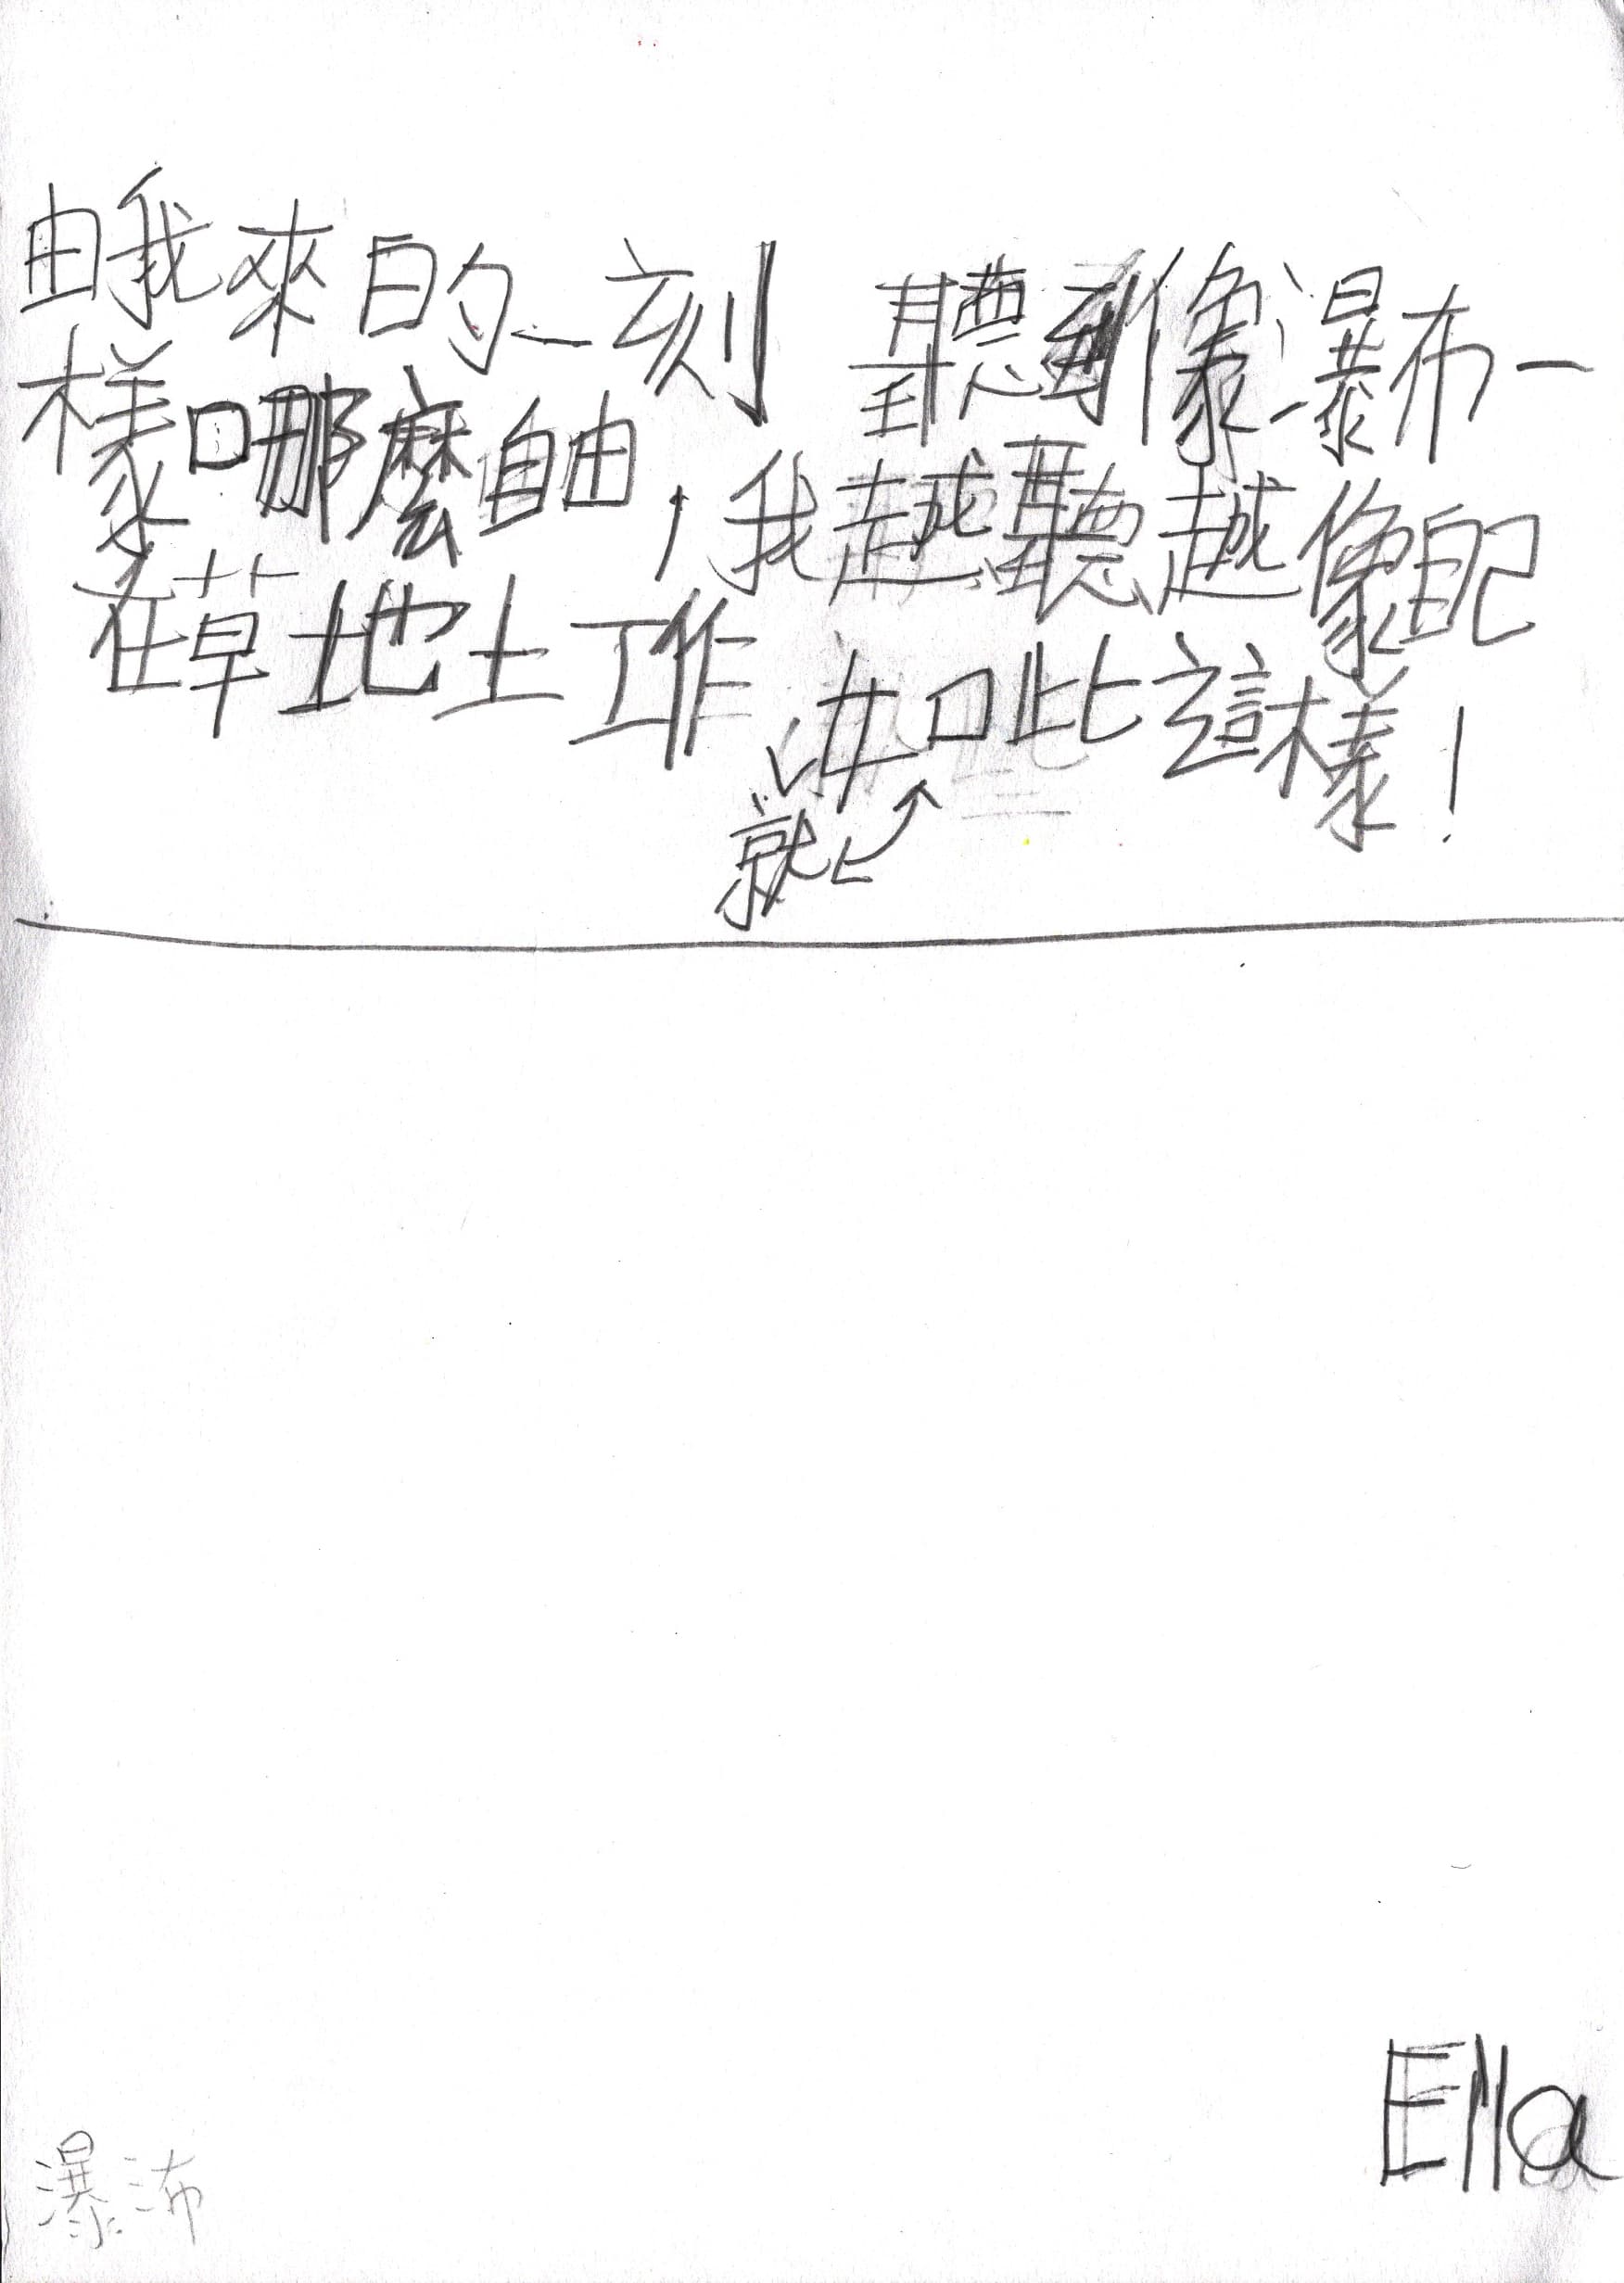 由我來的一刻 聽到像瀑布一
樣哪麼自由,我越聽越像配
在草地土工作,如此這樣!
就
Ella
瀑沛